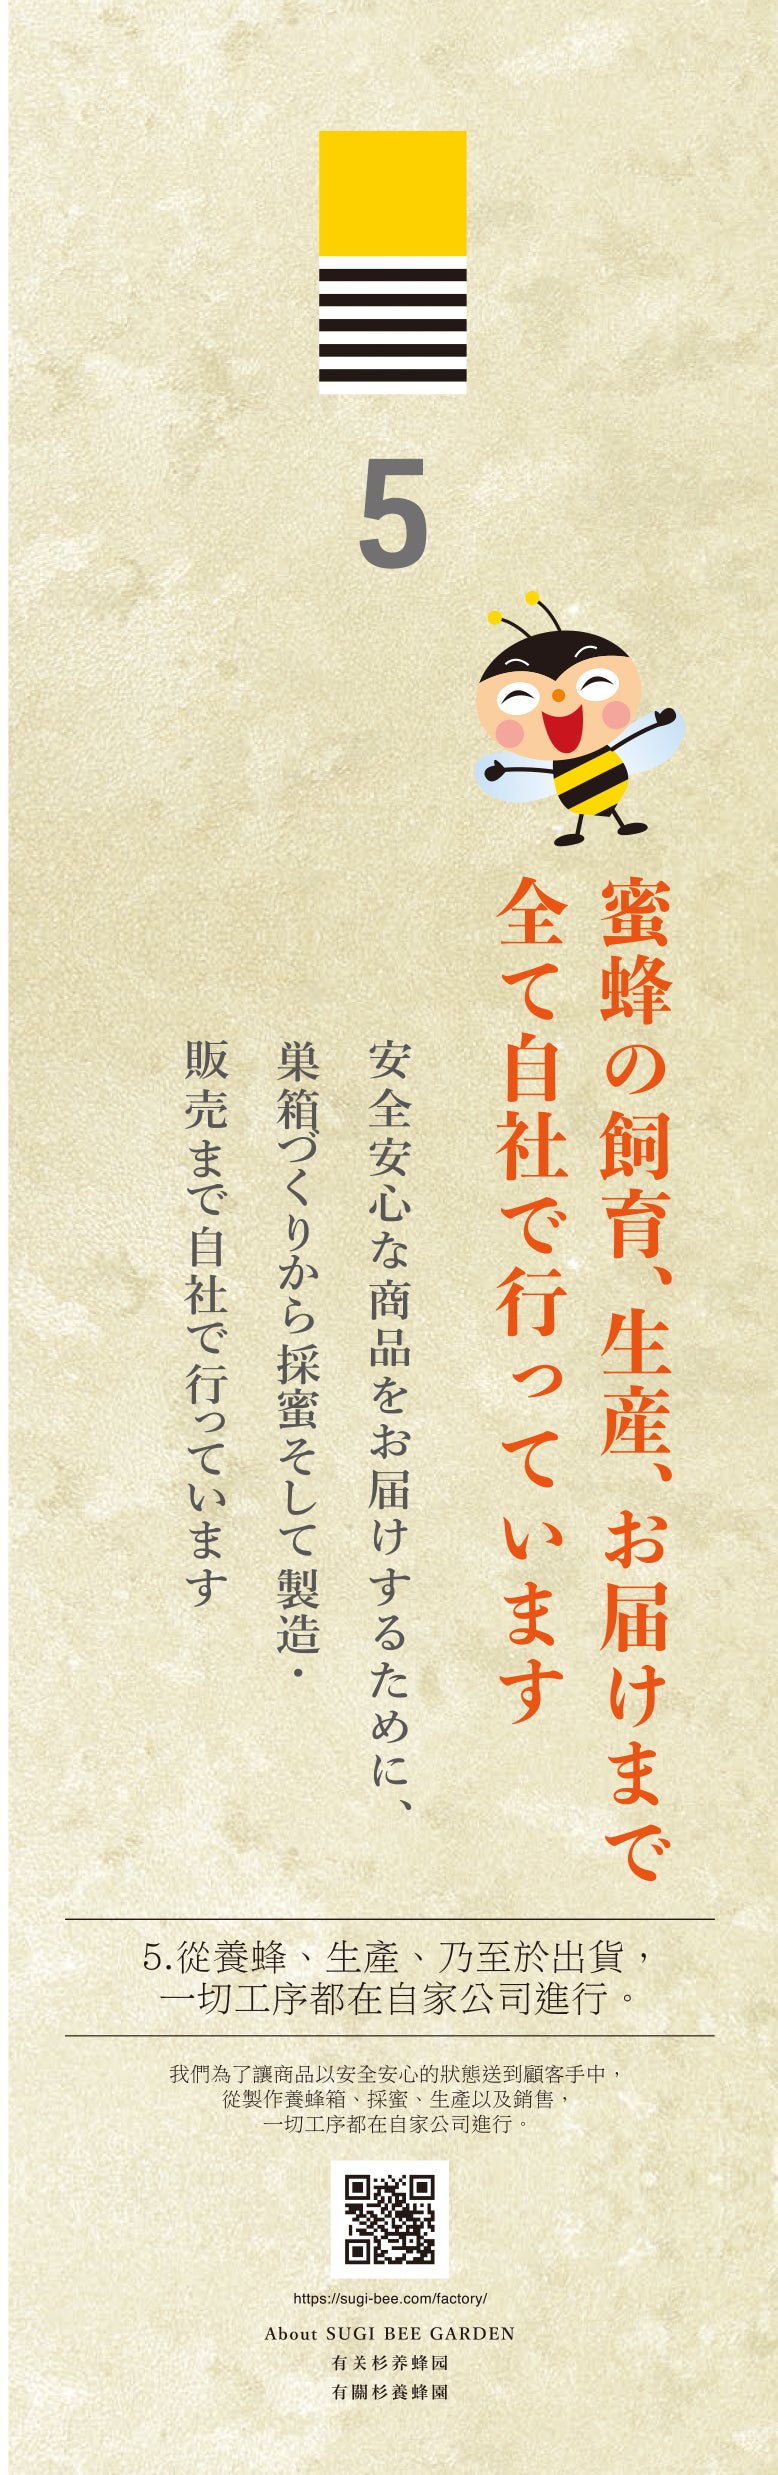 5
蜜蜂の飼育、生産、お届けまで
全て自社で行っています
安全安心な商品をお届けするために、
巣箱づくりから採蜜そして製造・
販売まで自社で行っています
5.從養蜂、生產、乃至於出貨，
一切工序都在自家公司進行。
我們為了讓商品以安全安心的狀態送到顧客手中，
從製作養蜂箱、採蜜、生產以及銷售，
一切工序都在自家公司進行。
https://sugi-bee.com/factory/
About SUGI BEE GARDEN
有关杉养蜂园
有關杉養蜂園